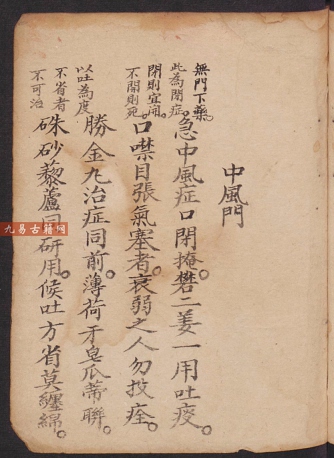 中風門
無門下藥。
此為閉症。
急中風症口閉掩。礬二姜一用吐痰。
閉則宜開。
不開則死。
口噤目張氣塞者。衰弱之人勿投痊。
以吐為度
勝金丸治症同前。薄荷牙皂瓜蒂聯。
不省者
不可治
硃砂藜蘆同研用。候吐方省莫纏綿。
九易古籍网